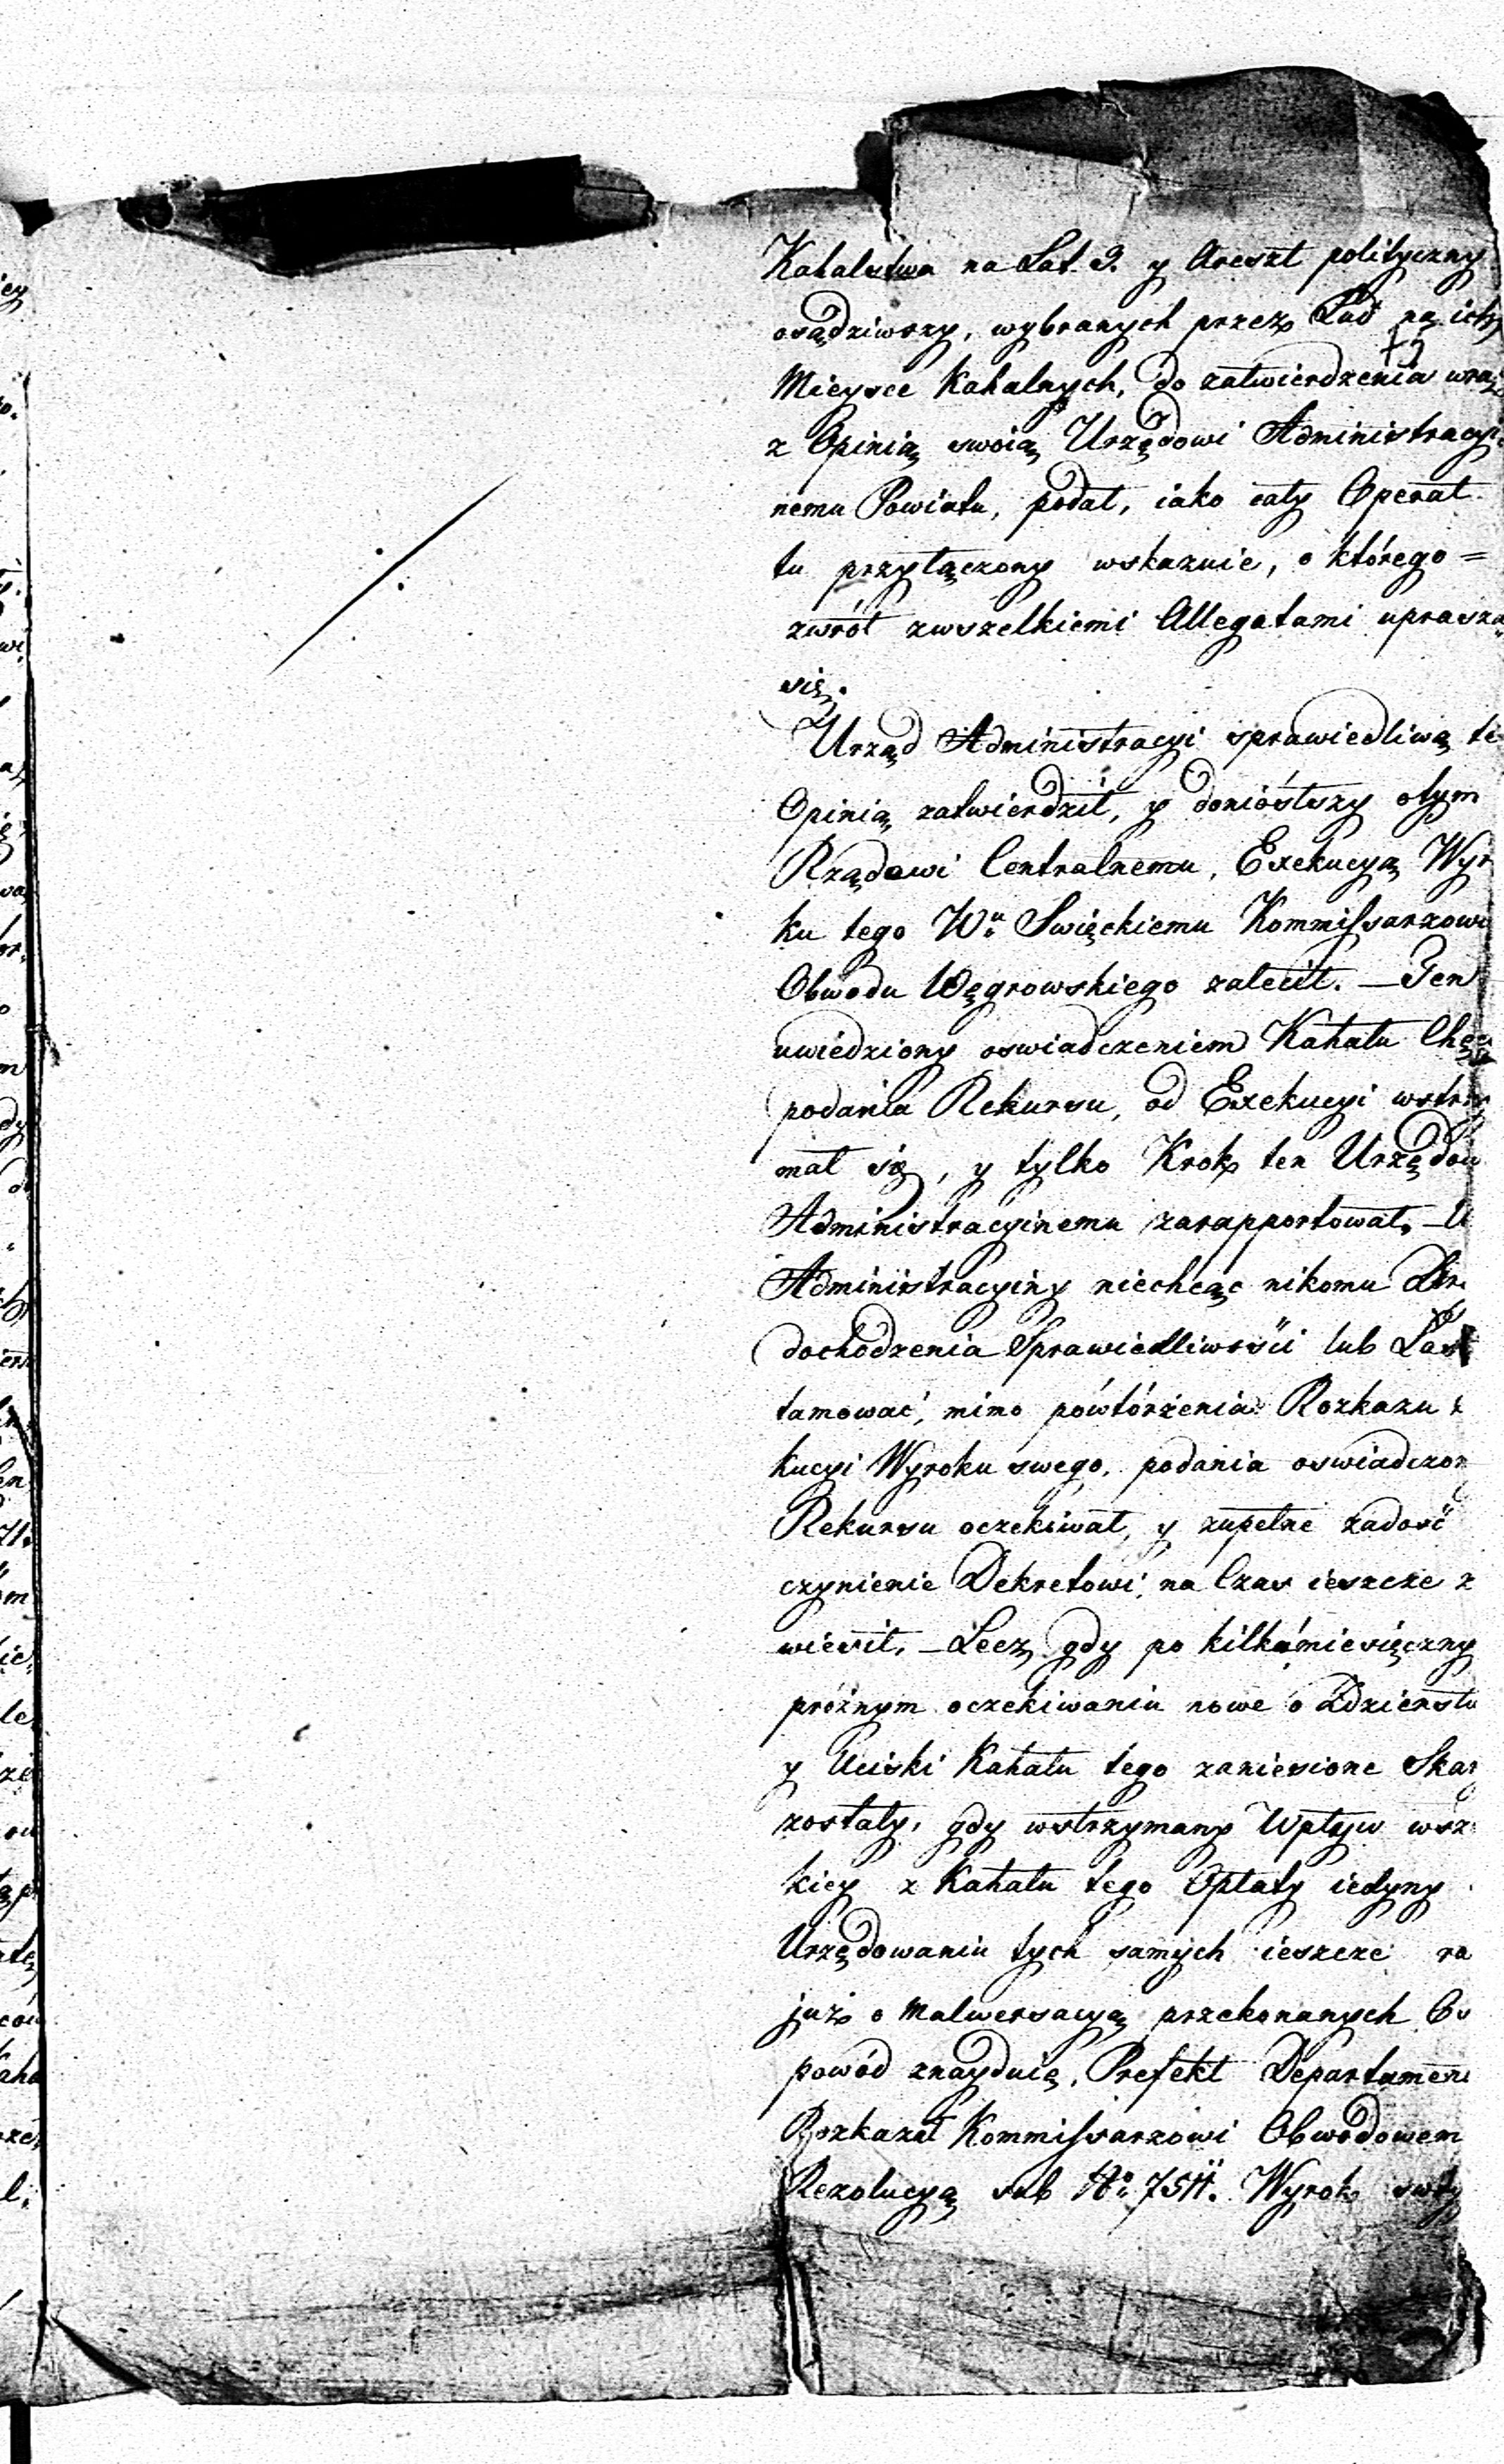 Kahalstwa na Lat. 9. y Areszt polityczny
osądziwszy, wybranych przez Lud na ich
Mieysce Kahalnych, do zatwierdzenia wraz
z Opinią swoią Urzędowi Administracyi
nemu Powiatu, podał, iako cały Operat
tu przyłączony wskazuie, o którego =
zwrót zwszelkiemi Allegatami uprasza
się.
Urząd Administracyi sprawiedliwą tę
Opinią zatwierdził, y doniósłszy otym
Rządowi Centralnemu, Exekucyą Wyr
ku tego Wu Swięckiemu Kommissarzowi
Obwodu Węgrowskiego zalecił. – Ten
uwiedziony oswiadczeniem Kahału Chęci
podania Rekursu, od Exekucyi wstrzy
mał się, y tylko Krok ten Urzędow
Administracyinemu zarapportował. – U
Administracyiny niechcąc nikomu
dochodzenia Sprawiedliwości lub Łask
tamować, mimo powtórzenia Rozkazu
kucyi Wyroku swego, podania oswiadczon
Rekursu oczekiwał, y zupełne zadość
czynienie Dekretowi na Czas ieszcze z
wiesił. – Lecz gdy po kilkamiesięczny
próżnym oczekiwaniu nowe o Zdzierstw
y Uciski Kahału tego zaniesione Skar
zostały, gdy wstrzymany Wpływ wsz
kiey z Kahału tego Opłaty iedyny
Urzędowaniu tych samych ieszcze ra
już o Malwersacyą przekonanych Os
powód znayduię, Prefekt Departamen
Rozkazał Kommissarzowi Obwodowem
Rezolucyą sub No 7514. Wyrok swóy